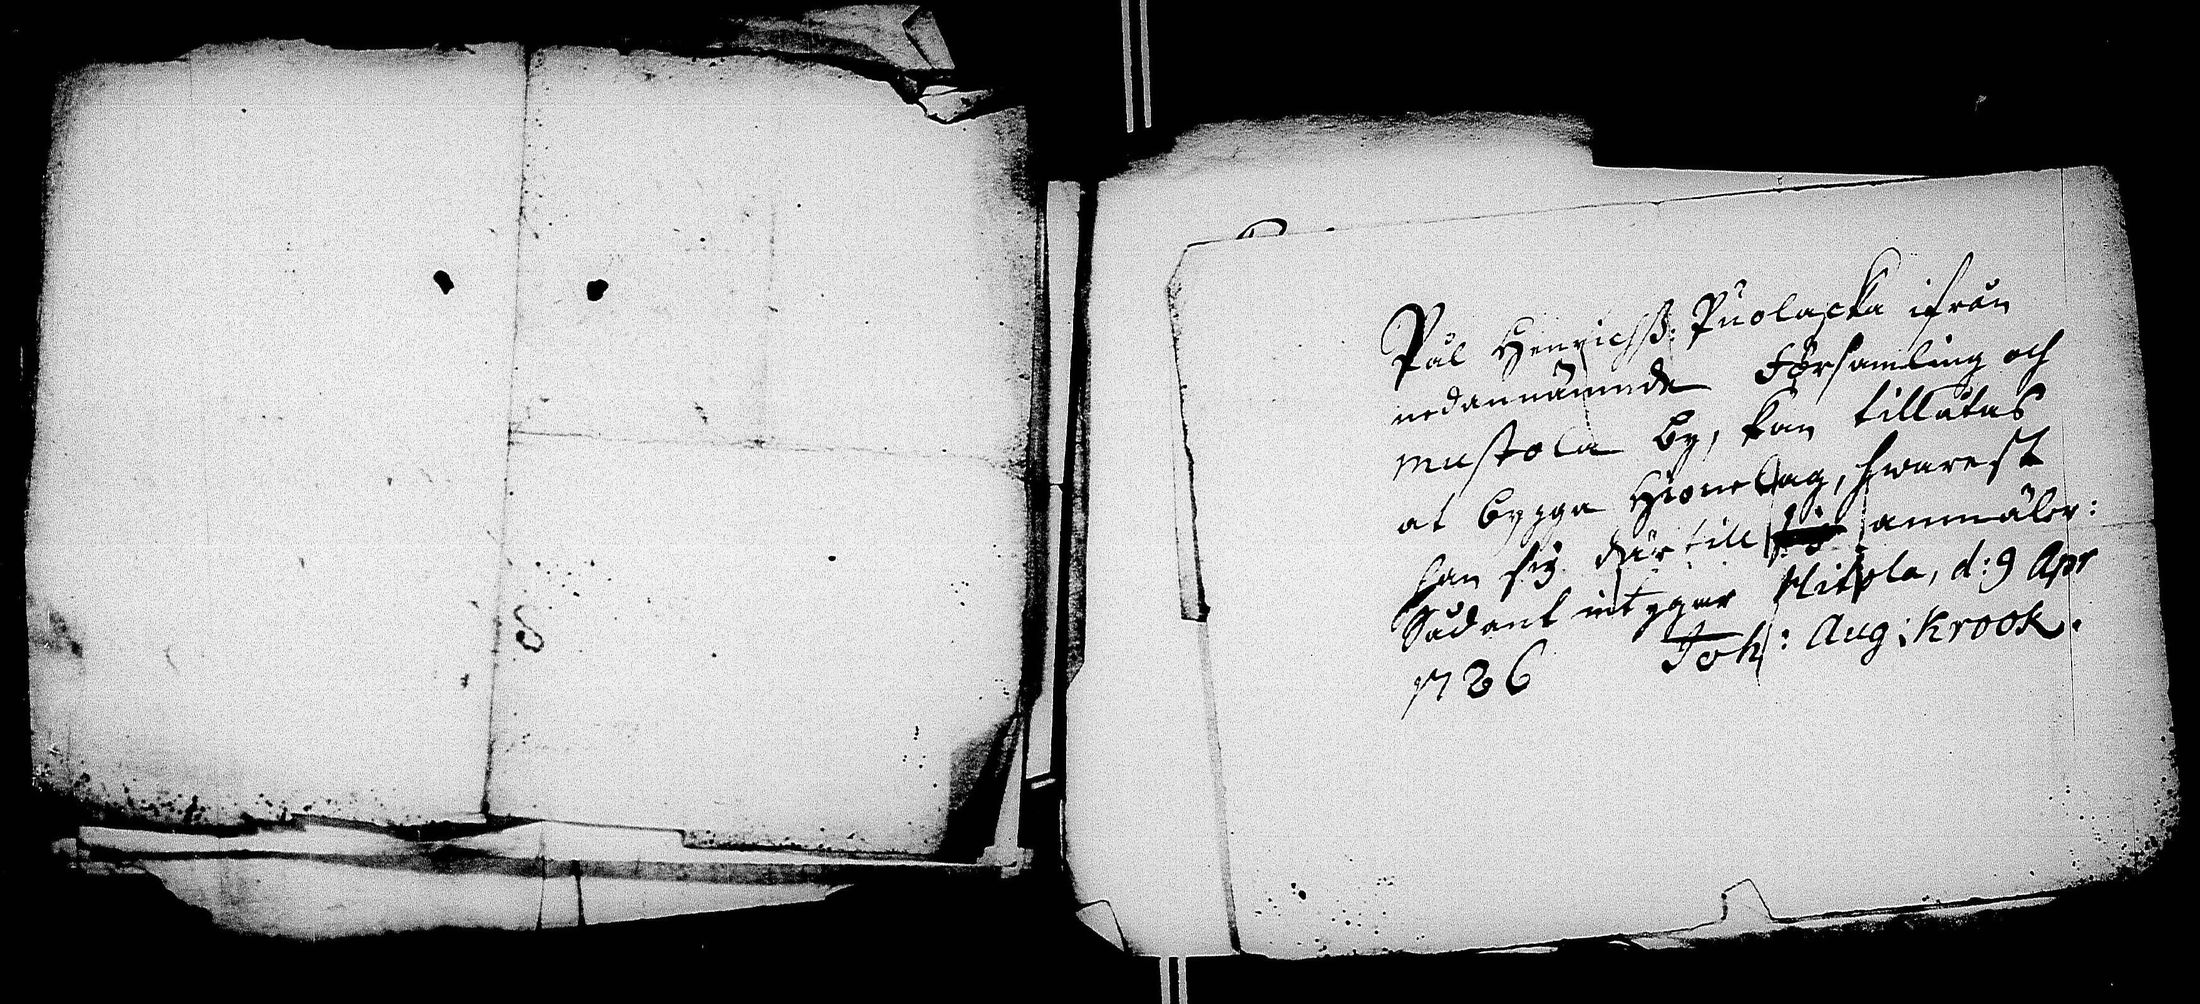 Pål Henrichß: Puolacka ifrån
nedannämnde Församling och
Mustola by, kan tillåtas
at bygga Hionelag, hwarest
han sig där till anmäler:
Sådant intygar Hitola, d: 9 Apr
1726 Joh: Aug: Krook.